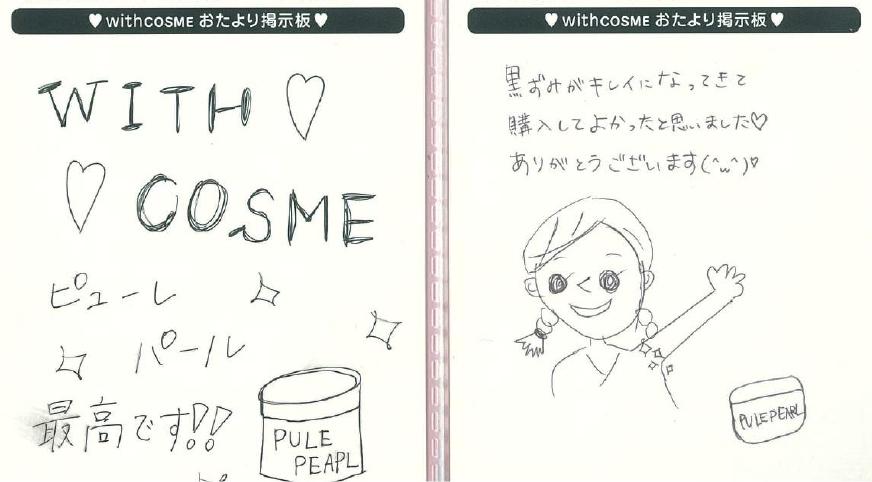 ♥ withCOSME おたより掲示板 ♥
WITH ♡
♡ COSME
ピューレ
パール
最高です!!
PULE
PEAPL
♥ withCOSME おたより掲示板 ♥
黒ずみがキレイになってきて
購入してよかったと思いました♡
ありがとうございます(^ω^)♡
PULEPEARL